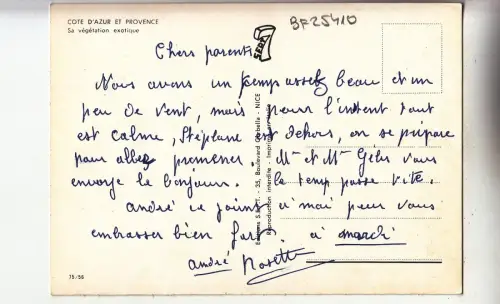 COTE D'AZUR ET PROVENCE
Sa végétation exotique
BF25410
SEPT
Chers parents
Nous avons un temp assez beau et un
peu de vent, mais pour l'instent tout
est calme, Stéphane est dehors, on se prépare
pour allez promener. Mme et Mr Gélis vous
envoye le bonjour. la temp passe vite.
André ce joint a mai pour vous
embrasser bien fort a mardi
André Rosette
Editions S.E.P.T. - 35, Boulevard - NICE
Reproduction interdite - Imprimé
75/56